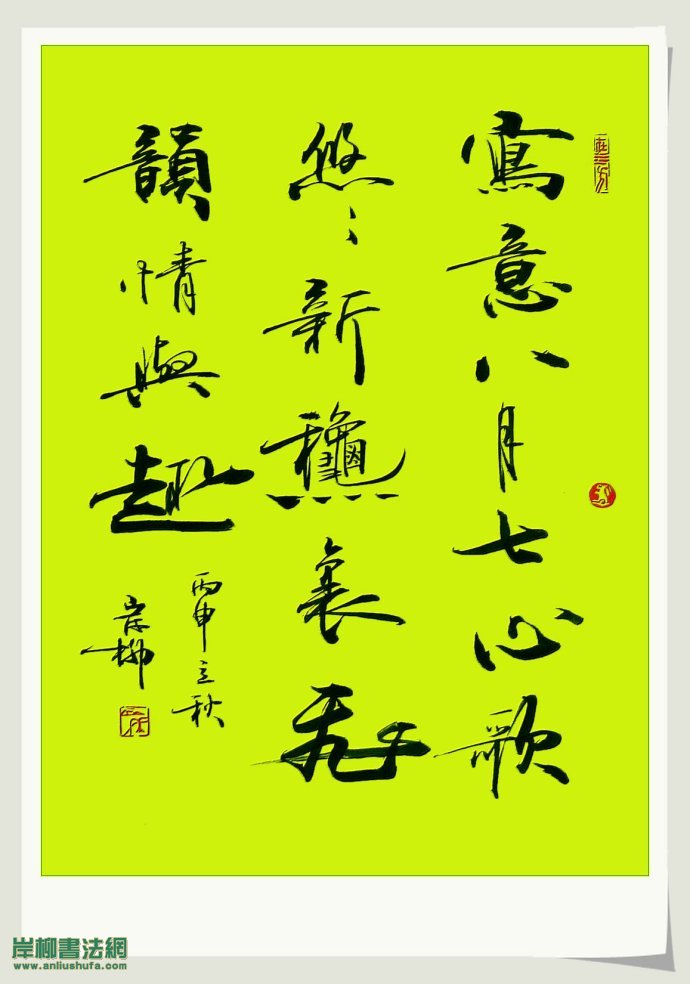 寫意八月七心歌
悠〻新龝
韻情與趣
丙申立秋
岸柳
岸柳書法網
www.anliushufa.com